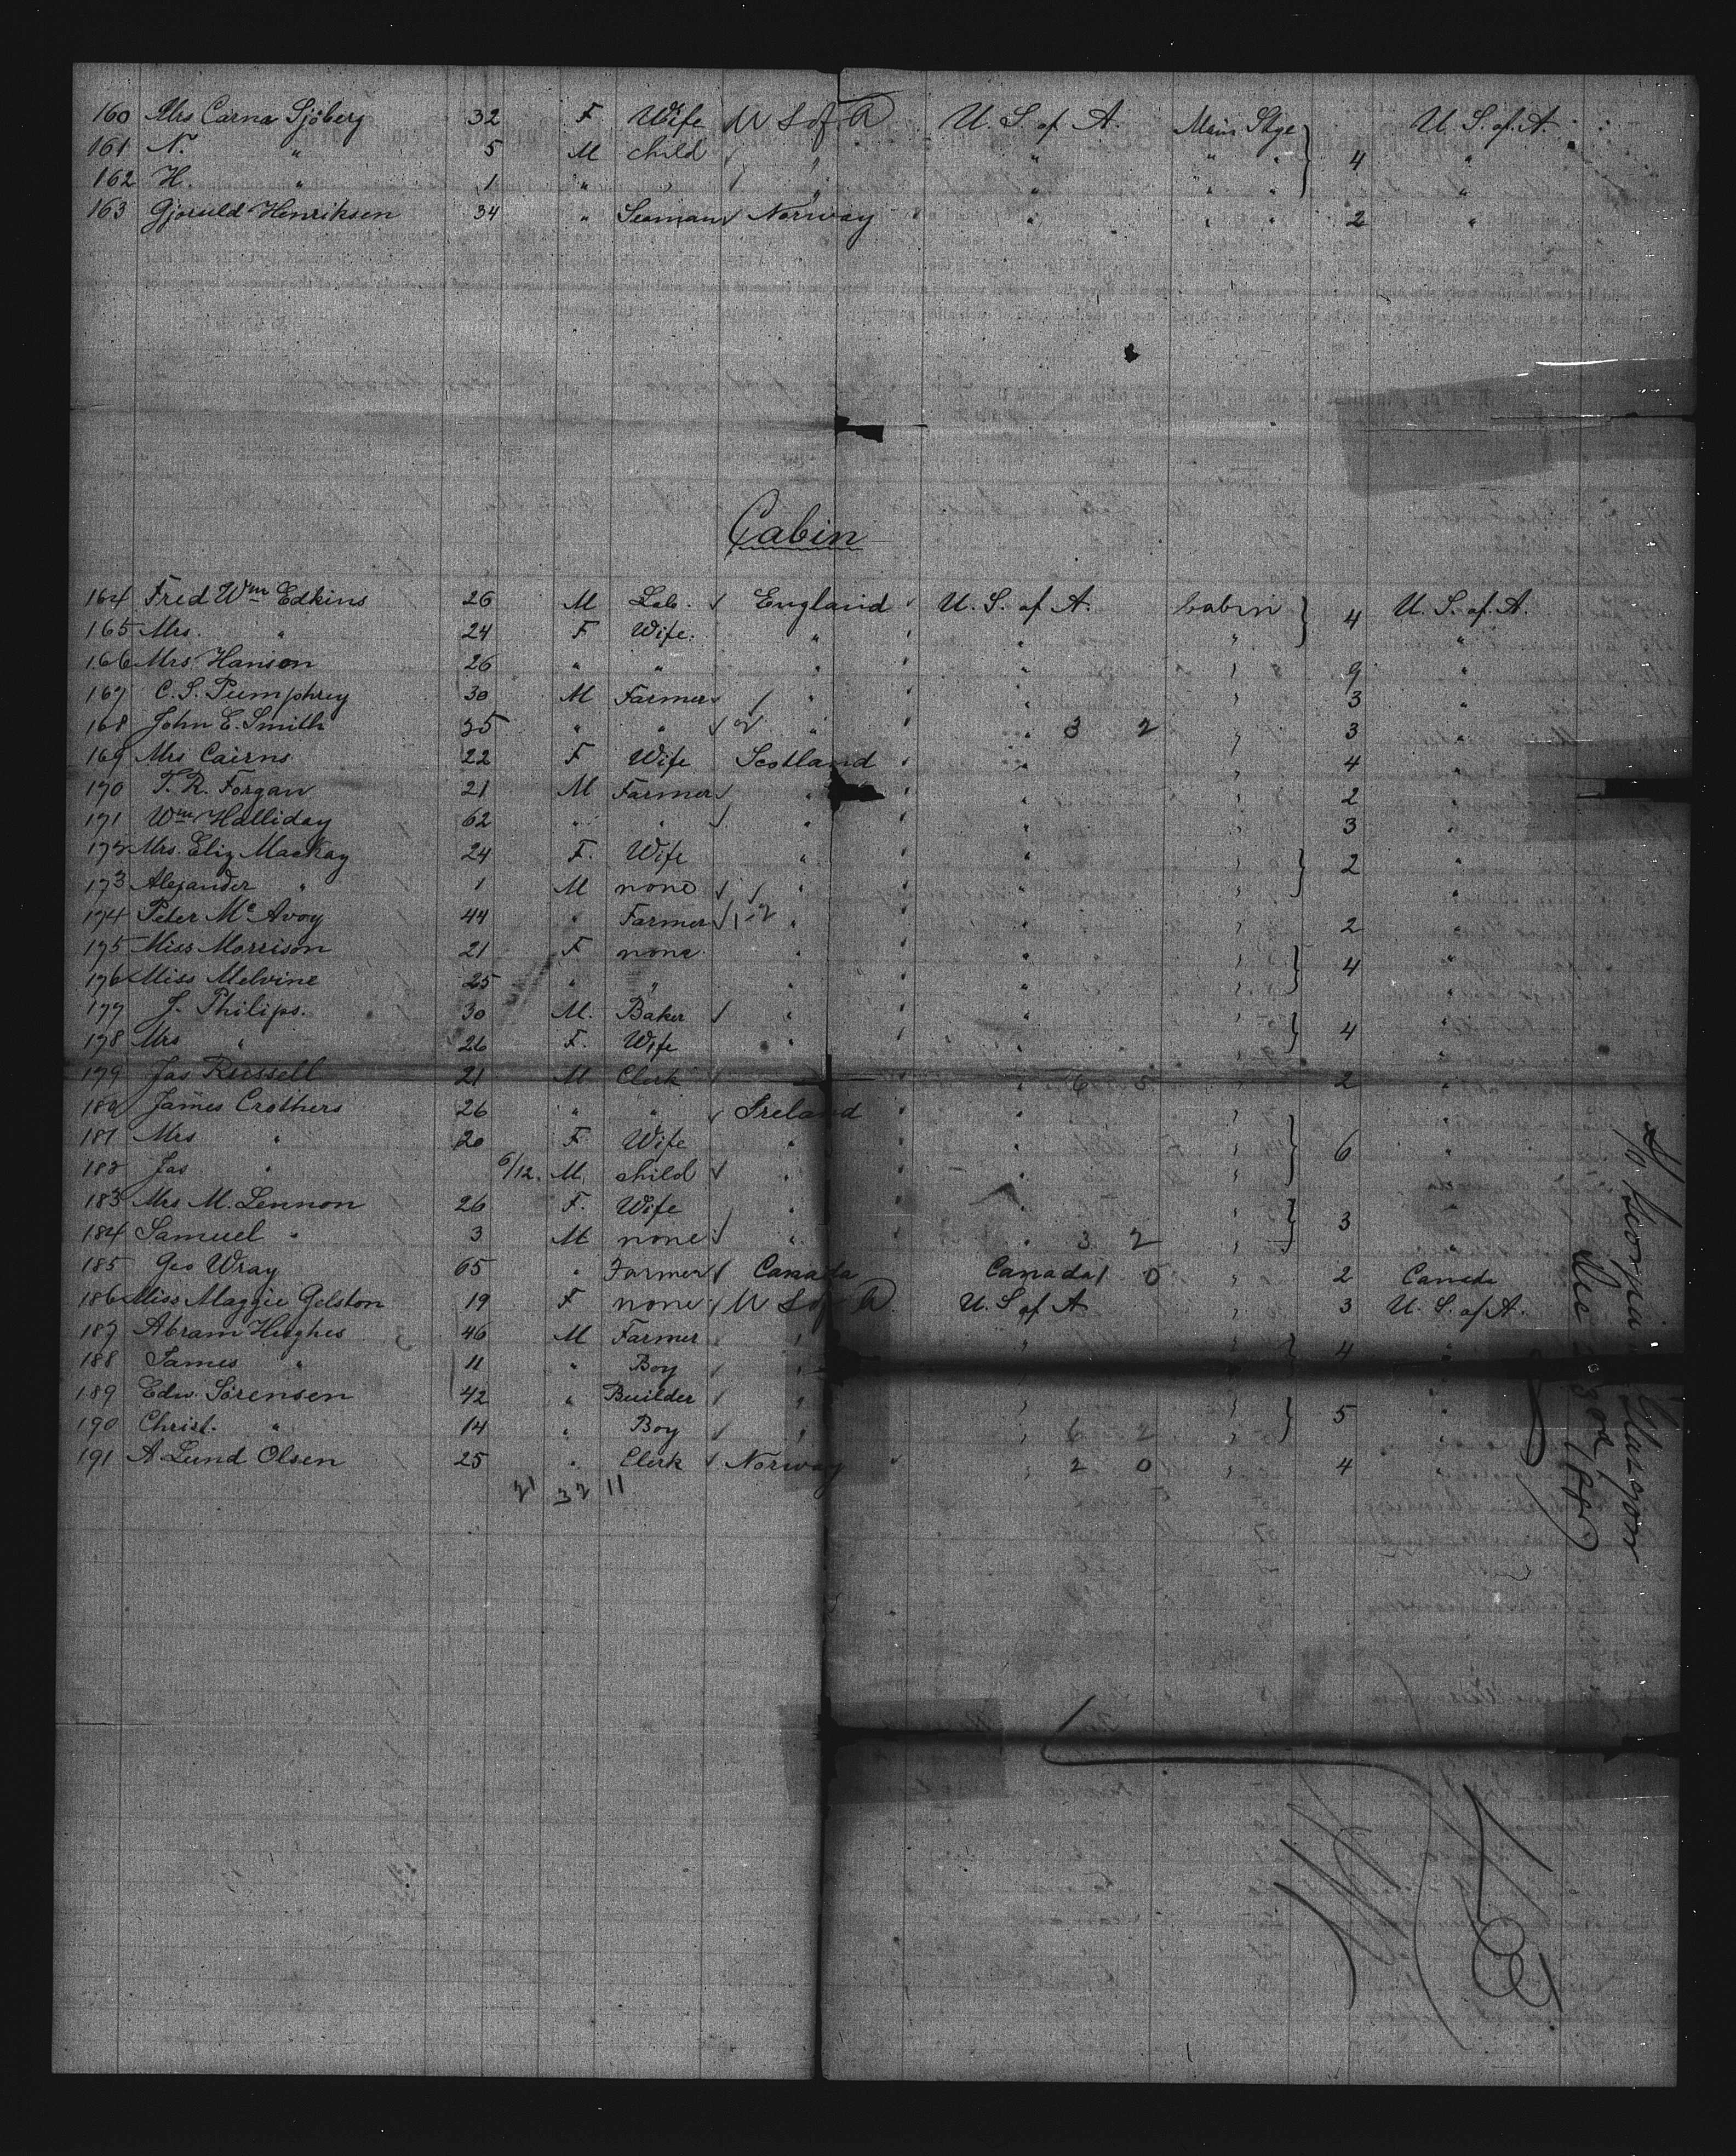 160 Mrs Carna Sjöberg 32 F Wife U S of A U. S. of A. Main Stge U. S. of. A.
161 N. " 5 M child " " " " 4 "
162 H. " 1 " " " " " " "
163 Gjoruld Henriksen 34 " Seaman Norway " " " 2 "
Cabin
164 Fred Wm Edkins 26 M Lab. England U. S. of A. Cabin 4 U. S. of. A.
165 Mrs. " 24 F Wife. " " " "
166 Mrs Hanson 26 " " " " " 9 "
167 C. S. Pumphrey 30 M Farmer " " " 3 "
168 John E. Smith 35 " " 2 " " 3 2 " 3 "
169 Mrs Cairns 22 F Wife Scotland " " 4 "
170 T. R. Forgan 21 M Farmer " " " 2 "
171 Wm Halliday 62 " " " " " 3 "
172 Mrs. Eliz Mackay 24 F. Wife " " " 2 "
173 Alexander " 1 M none " " " "
174 Peter Mc Avoy 44 " Farmer 1-2 " " " 2 "
175 Miss Morrison 21 F none " " " 4 "
176 Miss Melvine 25 " " " " " "
177 J. Philips. 30 M. Baker " " " 4 "
178 Mrs " 26 F. Wife " " " "
179 Jas Russell 21 M Clerk " " 6 5 " 2 "
180 James Crothers 26 " " Ireland " " 6 "
181 Mrs " 20 F. Wife " " " "
182 Jas " 6/12. M. child " " " "
183 Mrs M. Lennon 26 F. Wife " " " 3 "
184 Samuel " 3 M none " " 3 2 " "
185 Geo Wray 65 " Farmer Canada Canada 1 0 " 2 Canada
186 Miss Maggie Gelston 19 F none U S of A U. S of A " 3 U. S. of A.
187 Abram Hughes 46 M Farmer " " " 4 "
188 James " 11 " Boy " " " "
189 Edw. Sorensen 42 " Builder " " " 5 "
190 Christ. " 14 " Boy " " 6 2 " "
191 A Lund Olsen 25 " Clerk Norway " 2 0 " 4 "
21 32 11
Glasgow